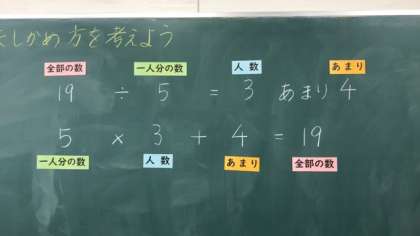 しかめ方を考えよう
全部の数 一人分の数 人数 あまり
19 ÷ 5 = 3 あまり 4
5 × 3 + 4 = 19
一人分の数 人数 あまり 全部の数